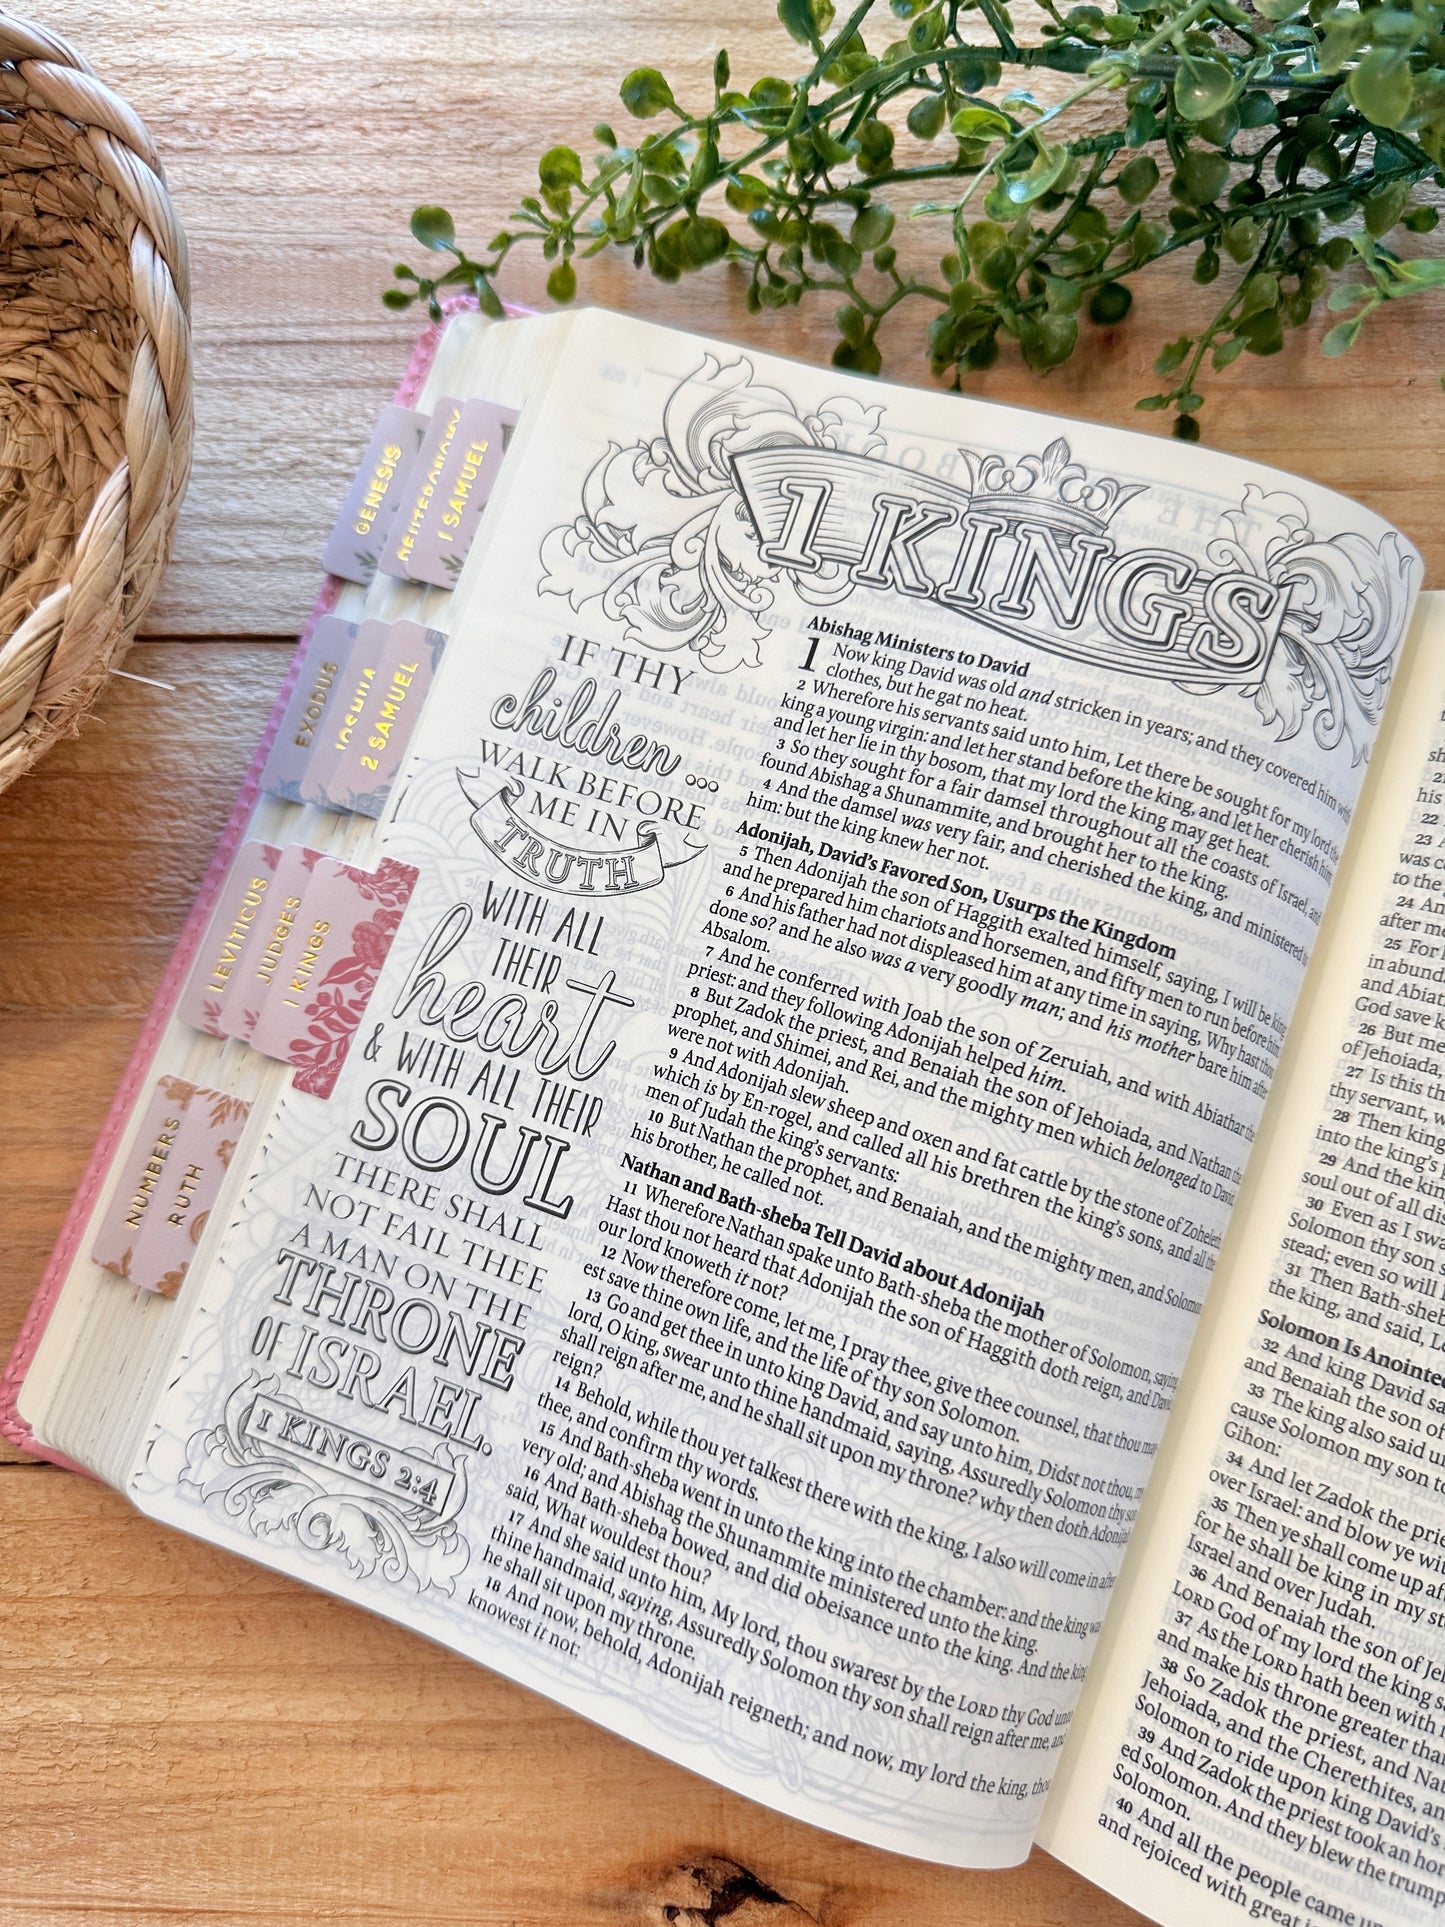 GENESIS
1 SAMUEL
EXODUS
JOSHUA
2 SAMUEL
LEVITICUS
JUDGES
1 KINGS
NUMBERS
RUTH
1 KINGS
IF THY
children ...
WALK BEFORE
ME IN
TRUTH
WITH ALL
THEIR
heart
& WITH ALL THEIR
SOUL
THERE SHALL
NOT FAIL THEE
A MAN ON THE
THRONE
OF ISRAEL.
1 KINGS 2:4
Abishag Ministers to David
1 Now king David was old and stricken in years; and they covered him with
clothes, but he gat no heat.
2 Wherefore his servants said unto him, Let there be sought for my lord the
king a young virgin: and let her stand before the king, and let her cherish him,
and let her lie in thy bosom, that my lord the king may get heat.
3 So they sought for a fair damsel throughout all the coasts of Israel, and
found Abishag a Shunammite, and brought her to the king.
4 And the damsel was very fair, and cherished the king, and ministered to
him: but the king knew her not.
Adonijah, David's Favored Son, Usurps the Kingdom
5 Then Adonijah the son of Haggith exalted himself, saying, I will be king:
and he prepared him chariots and horsemen, and fifty men to run before him.
6 And his father had not displeased him at any time in saying, Why hast thou
done so? and he also was a very goodly man; and his mother bare him after
Absalom.
7 And he conferred with Joab the son of Zeruiah, and with Abiathar the
priest: and they following Adonijah helped him.
8 But Zadok the priest, and Benaiah the son of Jehoiada, and Nathan the
prophet, and Shimei, and Rei, and the mighty men which belonged to David,
were not with Adonijah.
9 And Adonijah slew sheep and oxen and fat cattle by the stone of Zoheleth,
which is by En-rogel, and called all his brethren the king's sons, and all the
men of Judah the king's servants:
10 But Nathan the prophet, and Benaiah, and the mighty men, and Solomon
his brother, he called not.
Nathan and Bath-sheba Tell David about Adonijah
11 Wherefore Nathan spake unto Bath-sheba the mother of Solomon, saying,
Hast thou not heard that Adonijah the son of Haggith doth reign, and David
our lord knoweth it not?
12 Now therefore come, let me, I pray thee, give thee counsel, that thou may-
est save thine own life, and the life of thy son Solomon.
13 Go and get thee in unto king David, and say unto him, Didst not thou, my
lord, O king, swear unto thine handmaid, saying, Assuredly Solomon thy son
shall reign after me, and he shall sit upon my throne? why then doth Adonijah
reign?
14 Behold, while thou yet talkest there with the king, I also will come in after
thee, and confirm thy words.
15 And Bath-sheba went in unto the king into the chamber: and the king was
very old; and Abishag the Shunammite ministered unto the king.
16 And Bath-sheba bowed, and did obeisance unto the king. And the king
said, What wouldest thou?
17 And she said unto him, My lord, thou swarest by the LORD thy God unto
thine handmaid, saying, Assuredly Solomon thy son shall reign after me, and
he shall sit upon my throne.
18 And now, behold, Adonijah reigneth; and now, my lord the king, thou
knowest it not:
his
22
23
was c
to the
24 An
after me
25 For
in abund
and Abiat
God save k
26 But me
of Jehoiada,
27 Is this th
thy servant, w
28 Then king
into the king's
29 And the kin
soul out of all dis
30 Even as I swa
Solomon thy son s
stead; even so will I
31 Then Bath-sheb
the king, and said, Le
Solomon Is Anointed
32 And king David sa
and Benaiah the son of
33 The king also said u
cause Solomon my son to
Gihon:
34 And let Zadok the prie
over Israel: and blow ye wi
35 Then ye shall come up aft
for he shall be king in my st
Israel and over Judah.
36 And Benaiah the son of Jeh
LORD God of my lord the king s
37 As the LORD hath been with
and make his throne greater than
38 So Zadok the priest, and Nat
Jehoiada, and the Cherethites, an
Solomon to ride upon king David's
39 And Zadok the priest took an hor
ed Solomon. And they blew the trump
Solomon.
40 And all the people came up
and rejoiced with great